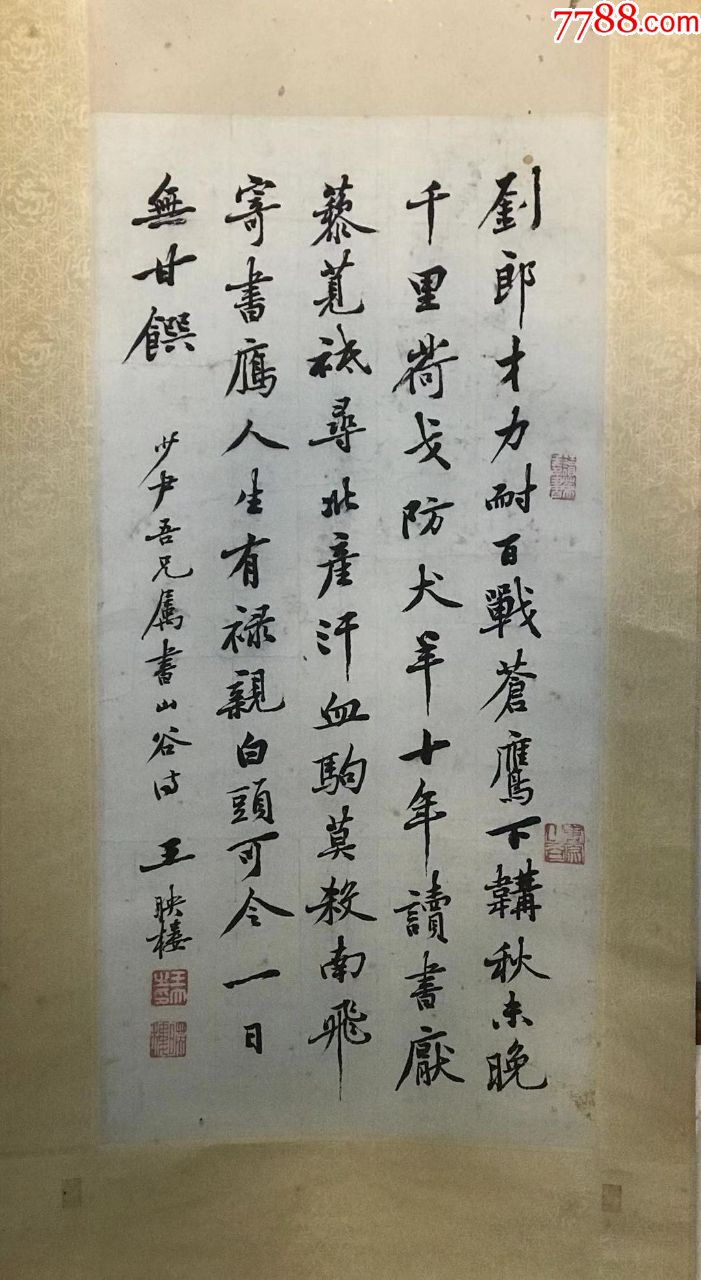 7788.com
劉郎才力耐百戰蒼鷹下韝秋未晚
千里荷戈防犬羊十年讀書厭
藜莧祗尋北產汗血駒莫殺南飛
寄書鴈人生有禄親白頭可令一日
無甘饌
少尹吾兄属書山谷诗 王映楼